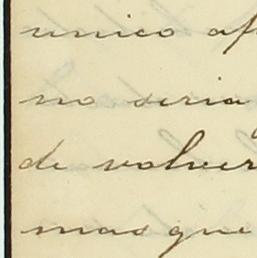 unico af
no seria
de volver
mas que